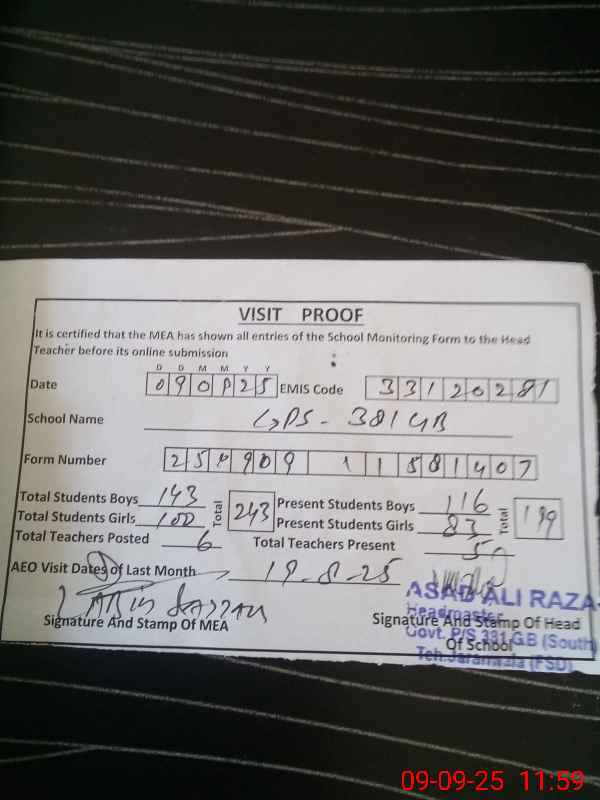 VISIT PROOF
It is certified that the MEA has shown all entries of the School Monitoring Form to the Head
Teacher before its online submission
D D M M Y Y
Date 090925 EMIS Code 33120281
School Name GPS - 381 GB
Form Number 250909 11581407
Total Students Boys 143 Total 243 Present Students Boys 116 Total 199
Total Students Girls 100 Present Students Girls 83
Total Teachers Posted 6 Total Teachers Present 5
AEO Visit Dates of Last Month 19-8-25
ASAD ALI RAZA
Headmaster
Govt. P/S 381 GB (South)
Teh. Jaranwala (FSD)
Signature And Stamp Of MEA
Signature And Stamp Of Head
Of School
09-09-25 11:59